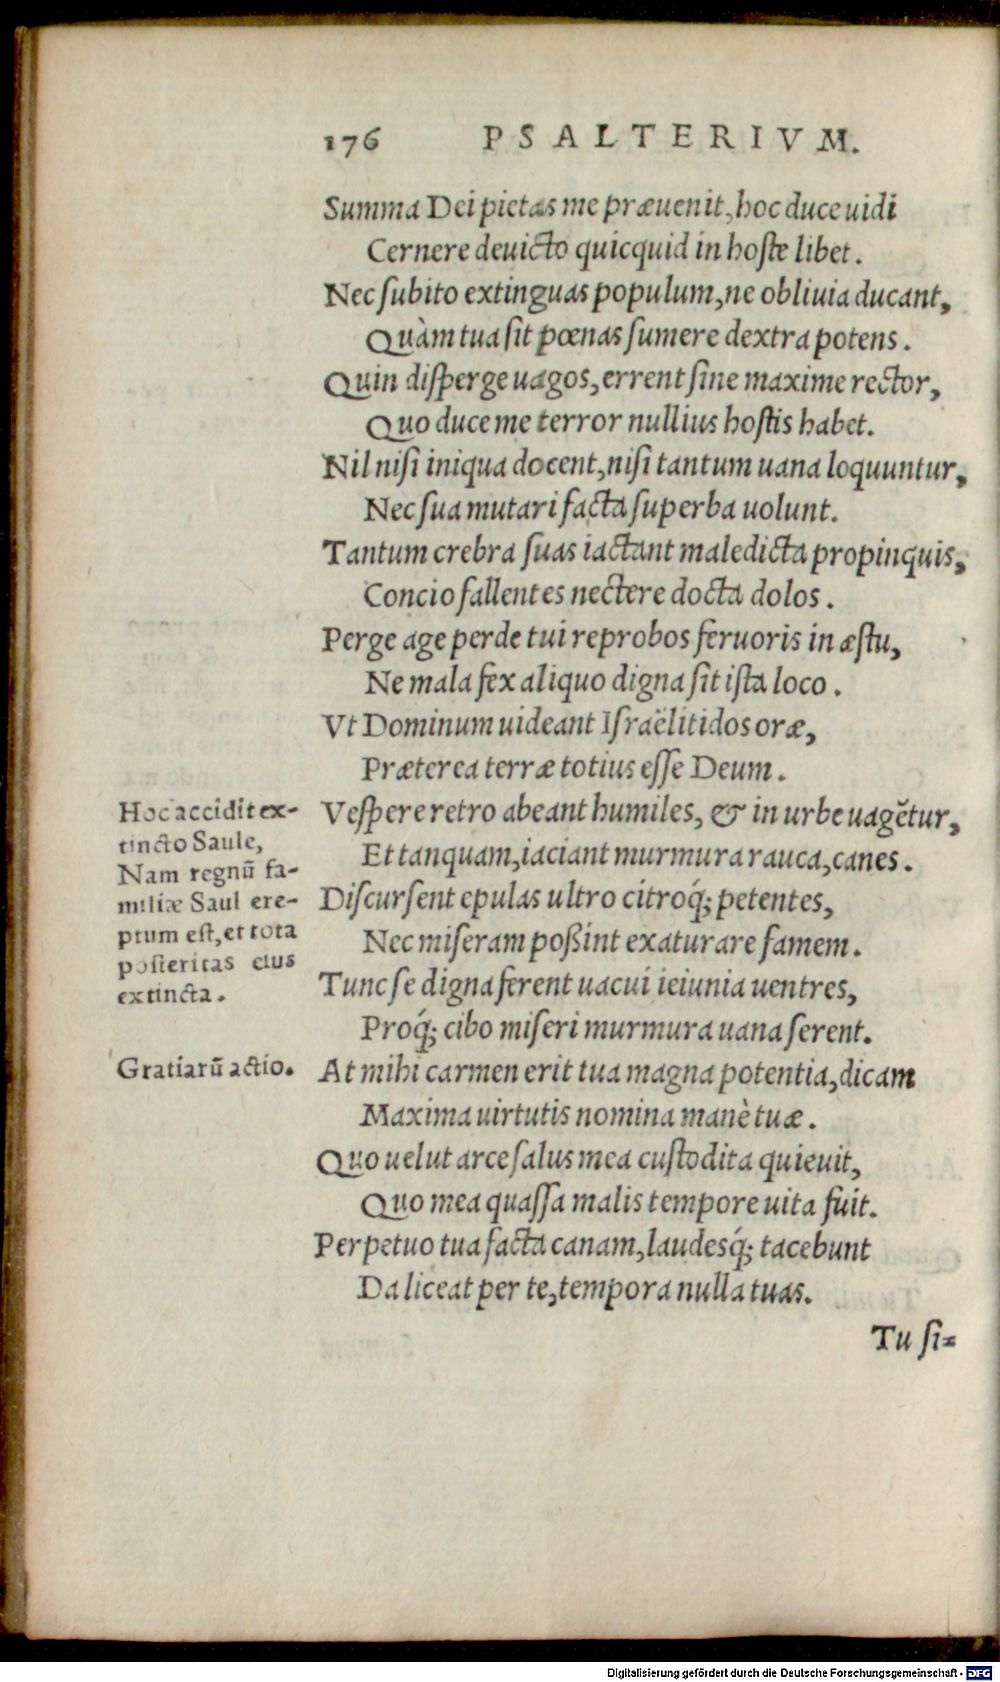 176 PSALTERIVM.
Summa Dei pietas me præuenit, hoc duce uidi
Cernere deuicto quicquid in hoste libet.
Nec subito extinguas populum, ne obliuia ducant,
Quàm tua sit pœnas sumere dextra potens.
Quin disperge uagos, errent sine maxime rector,
Quo duce me terror nullius hostis habet.
Nil nisi iniqua docent, nisi tantum uana loquuntur,
Nec sua mutari facta superba uolunt.
Tantum crebra suas iactant maledicta propinquis,
Concio fallentes nectere docta dolos.
Perge age perde tui reprobos feruoris in æstu,
Ne mala fex aliquo digna sit ista loco.
Vt Dominum uideant Israëlitidos oræ,
Præterea terræ totius esse Deum.
Vespere retro abeant humiles, & in urbe uagētur,
Et tanquam, iaciant murmura rauca, canes.
Discursent epulas ultro citroq́; petentes,
Nec miseram poßint exaturare famem.
Tunc se digna ferent uacui ieiunia uentres,
Proq́; cibo miseri murmura uana serent.
At mihi carmen erit tua magna potentia, dicam
Maxima uirtutis nomina manè tuæ.
Quo uelut arce salus mea custodita quieuit,
Quo mea quassa malis tempore uita fuit.
Perpetuo tua facta canam, laudesq́; tacebunt
Da liceat per te, tempora nulla tuas.
Tu si-
Hoc accidit ex-
tincto Saule,
Nam regnū fa-
miliæ Saul ere-
ptum est, et tota
posteritas eius
extincta.
Gratiarū actio.
Digitalisierung gefördert durch die Deutsche Forschungsgemeinschaft - DFG